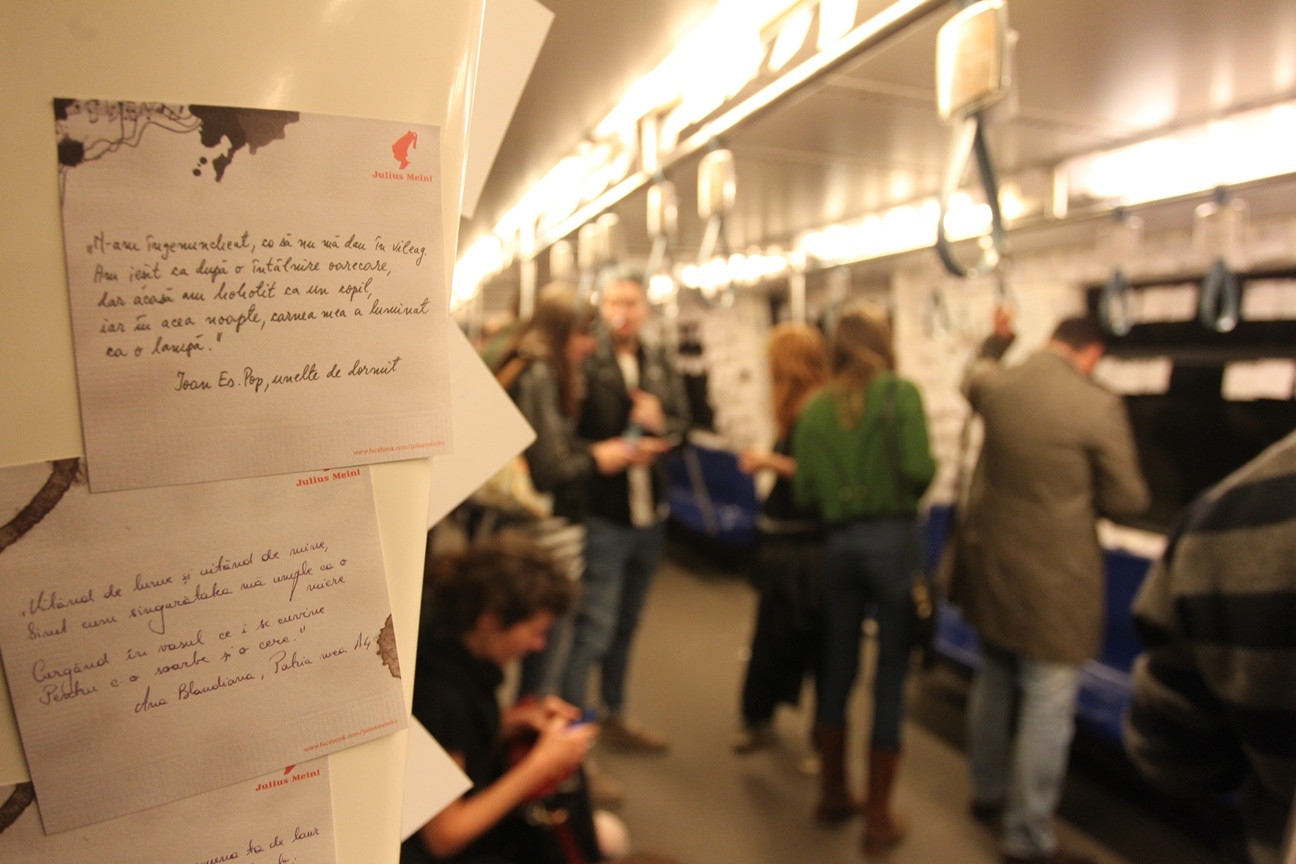 Julius Meinl
„M-am îngenuncheat, ca să nu mă dau în vileag.
Am ieşit ca după o întâlnire oarecare,
dar acasă am hohotit ca un copil,
iar în acea noapte, carnea mea a luminat
ca o lampă."
Ioan Es. Pop, unelte de dormit
Julius Meinl
„Uitând de lume şi uitând de mine,
Simt cum singurătatea mă umple ca o
miere
Curgând în vasul ce i se cuvine
Pentru c-o soarbe şi o cere."
Ana Blandiana, Patria mea A4
Julius Meinl
ta de